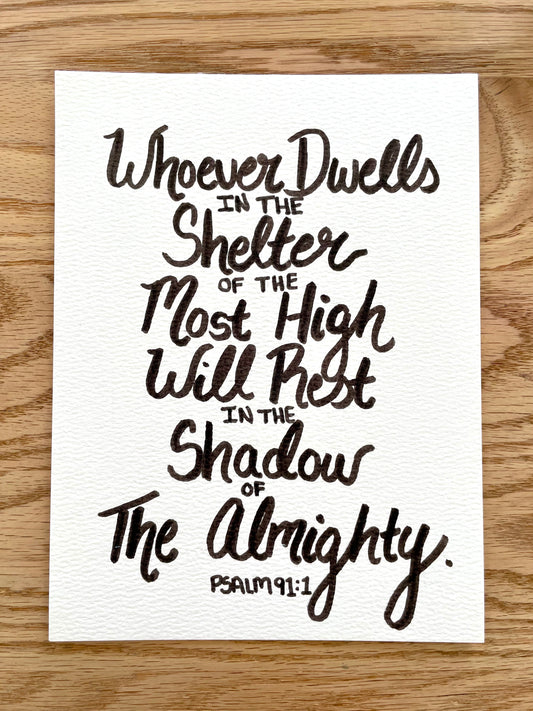 Whoever Dwells
IN THE
Shelter
OF THE
Most High
Will Rest
IN THE
Shadow
OF
The Almighty.
PSALM 91:1